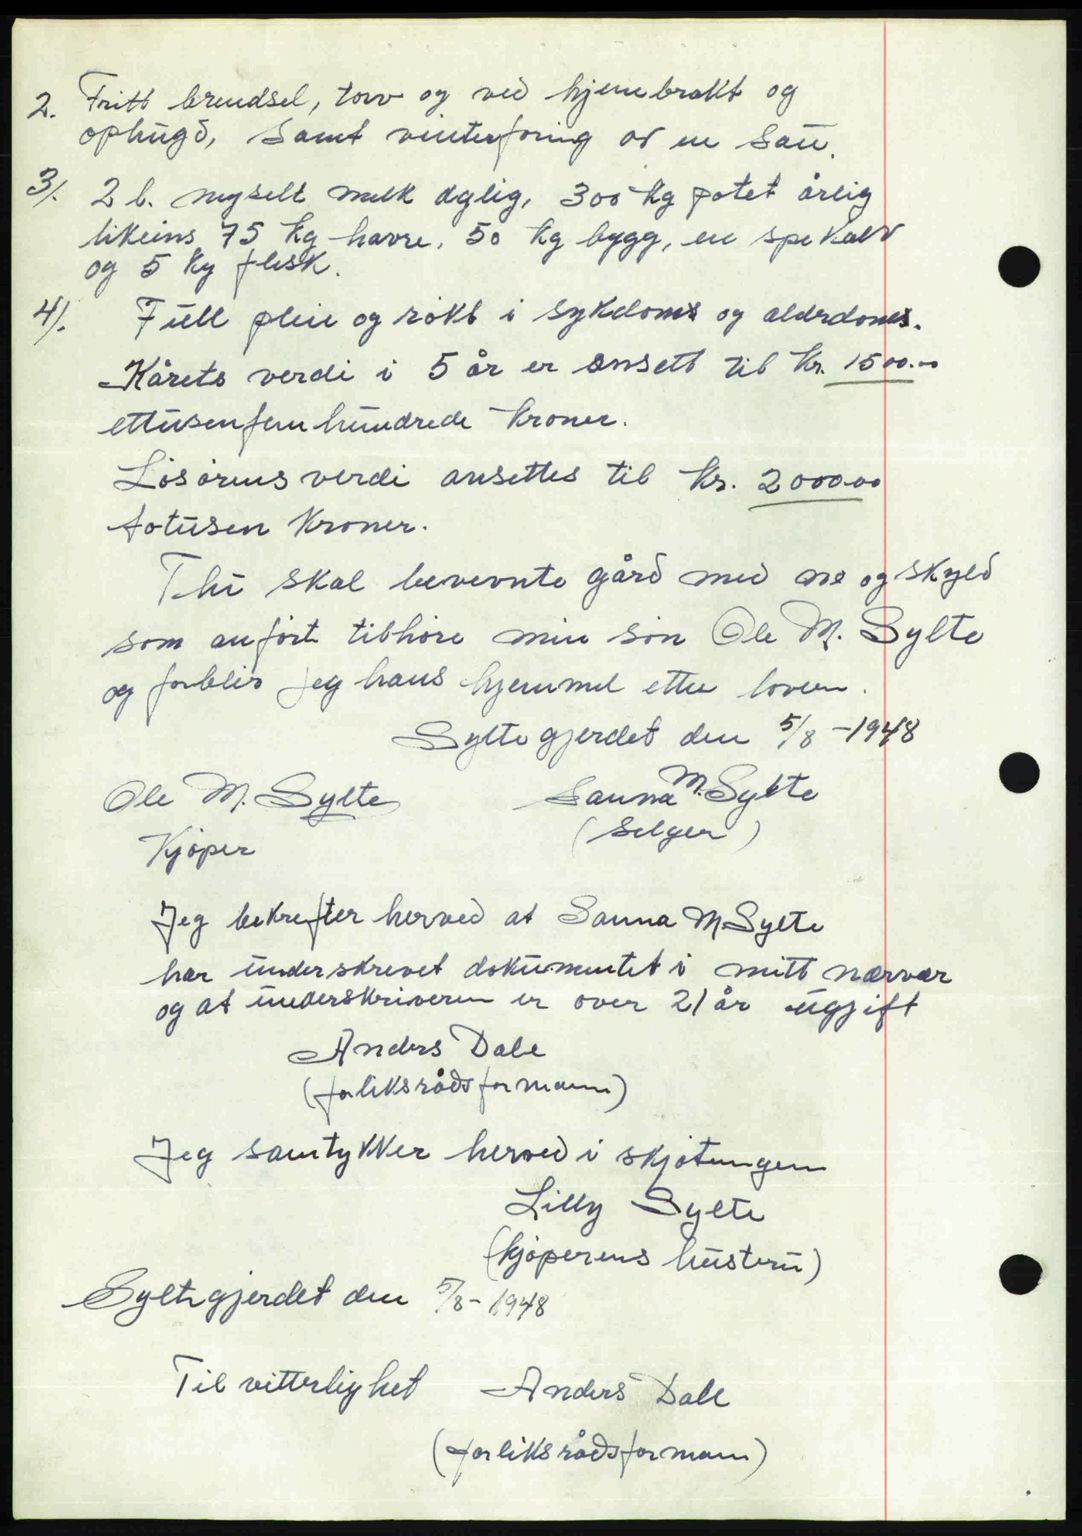 2. Fritt brendsel, torv og ved hjemebrakt og
ophugd, samt vinterforing av en sau.
3/. 2 l. nysilt melk dglig, 300 kg potet årlig
likeins 75 kg havre, 50 kg bygg, en spekalv
og 5 kg flesk.
4/. Full pleie og røkt i sykdoms og alderdoms.
Kårets verdi i 5 år er ansett til kr. 1500.00
ettusenfemhundrede kroner.
Løsørens verdi ansettes til kr. 2000.00
totusen kroner.
Thi skal bevevnte gård med nr og skyld
som anført tilhøre min søn Ole M. Sylte
og forblir jeg hans hjemmel etter loven.
Syltegjerdet den 5/8-1948
Ole M. Sylte Sanna M. Sylte
Kjøper (Selger)
Jeg bekrefter herved at Sanna M Sylte
har underskrevet dokumentet i mitt nærvær
og at underskriveren er over 21 år ugjift
Anders Dale
(forliksrådsformann)
Jeg samtykker herved i skjøtningen
Lilly Sylte
(kjøperens hustru)
Syltegjerdet den 5/8-1948
Til vitterlighet Anders Dale
(forliksrådsformann)